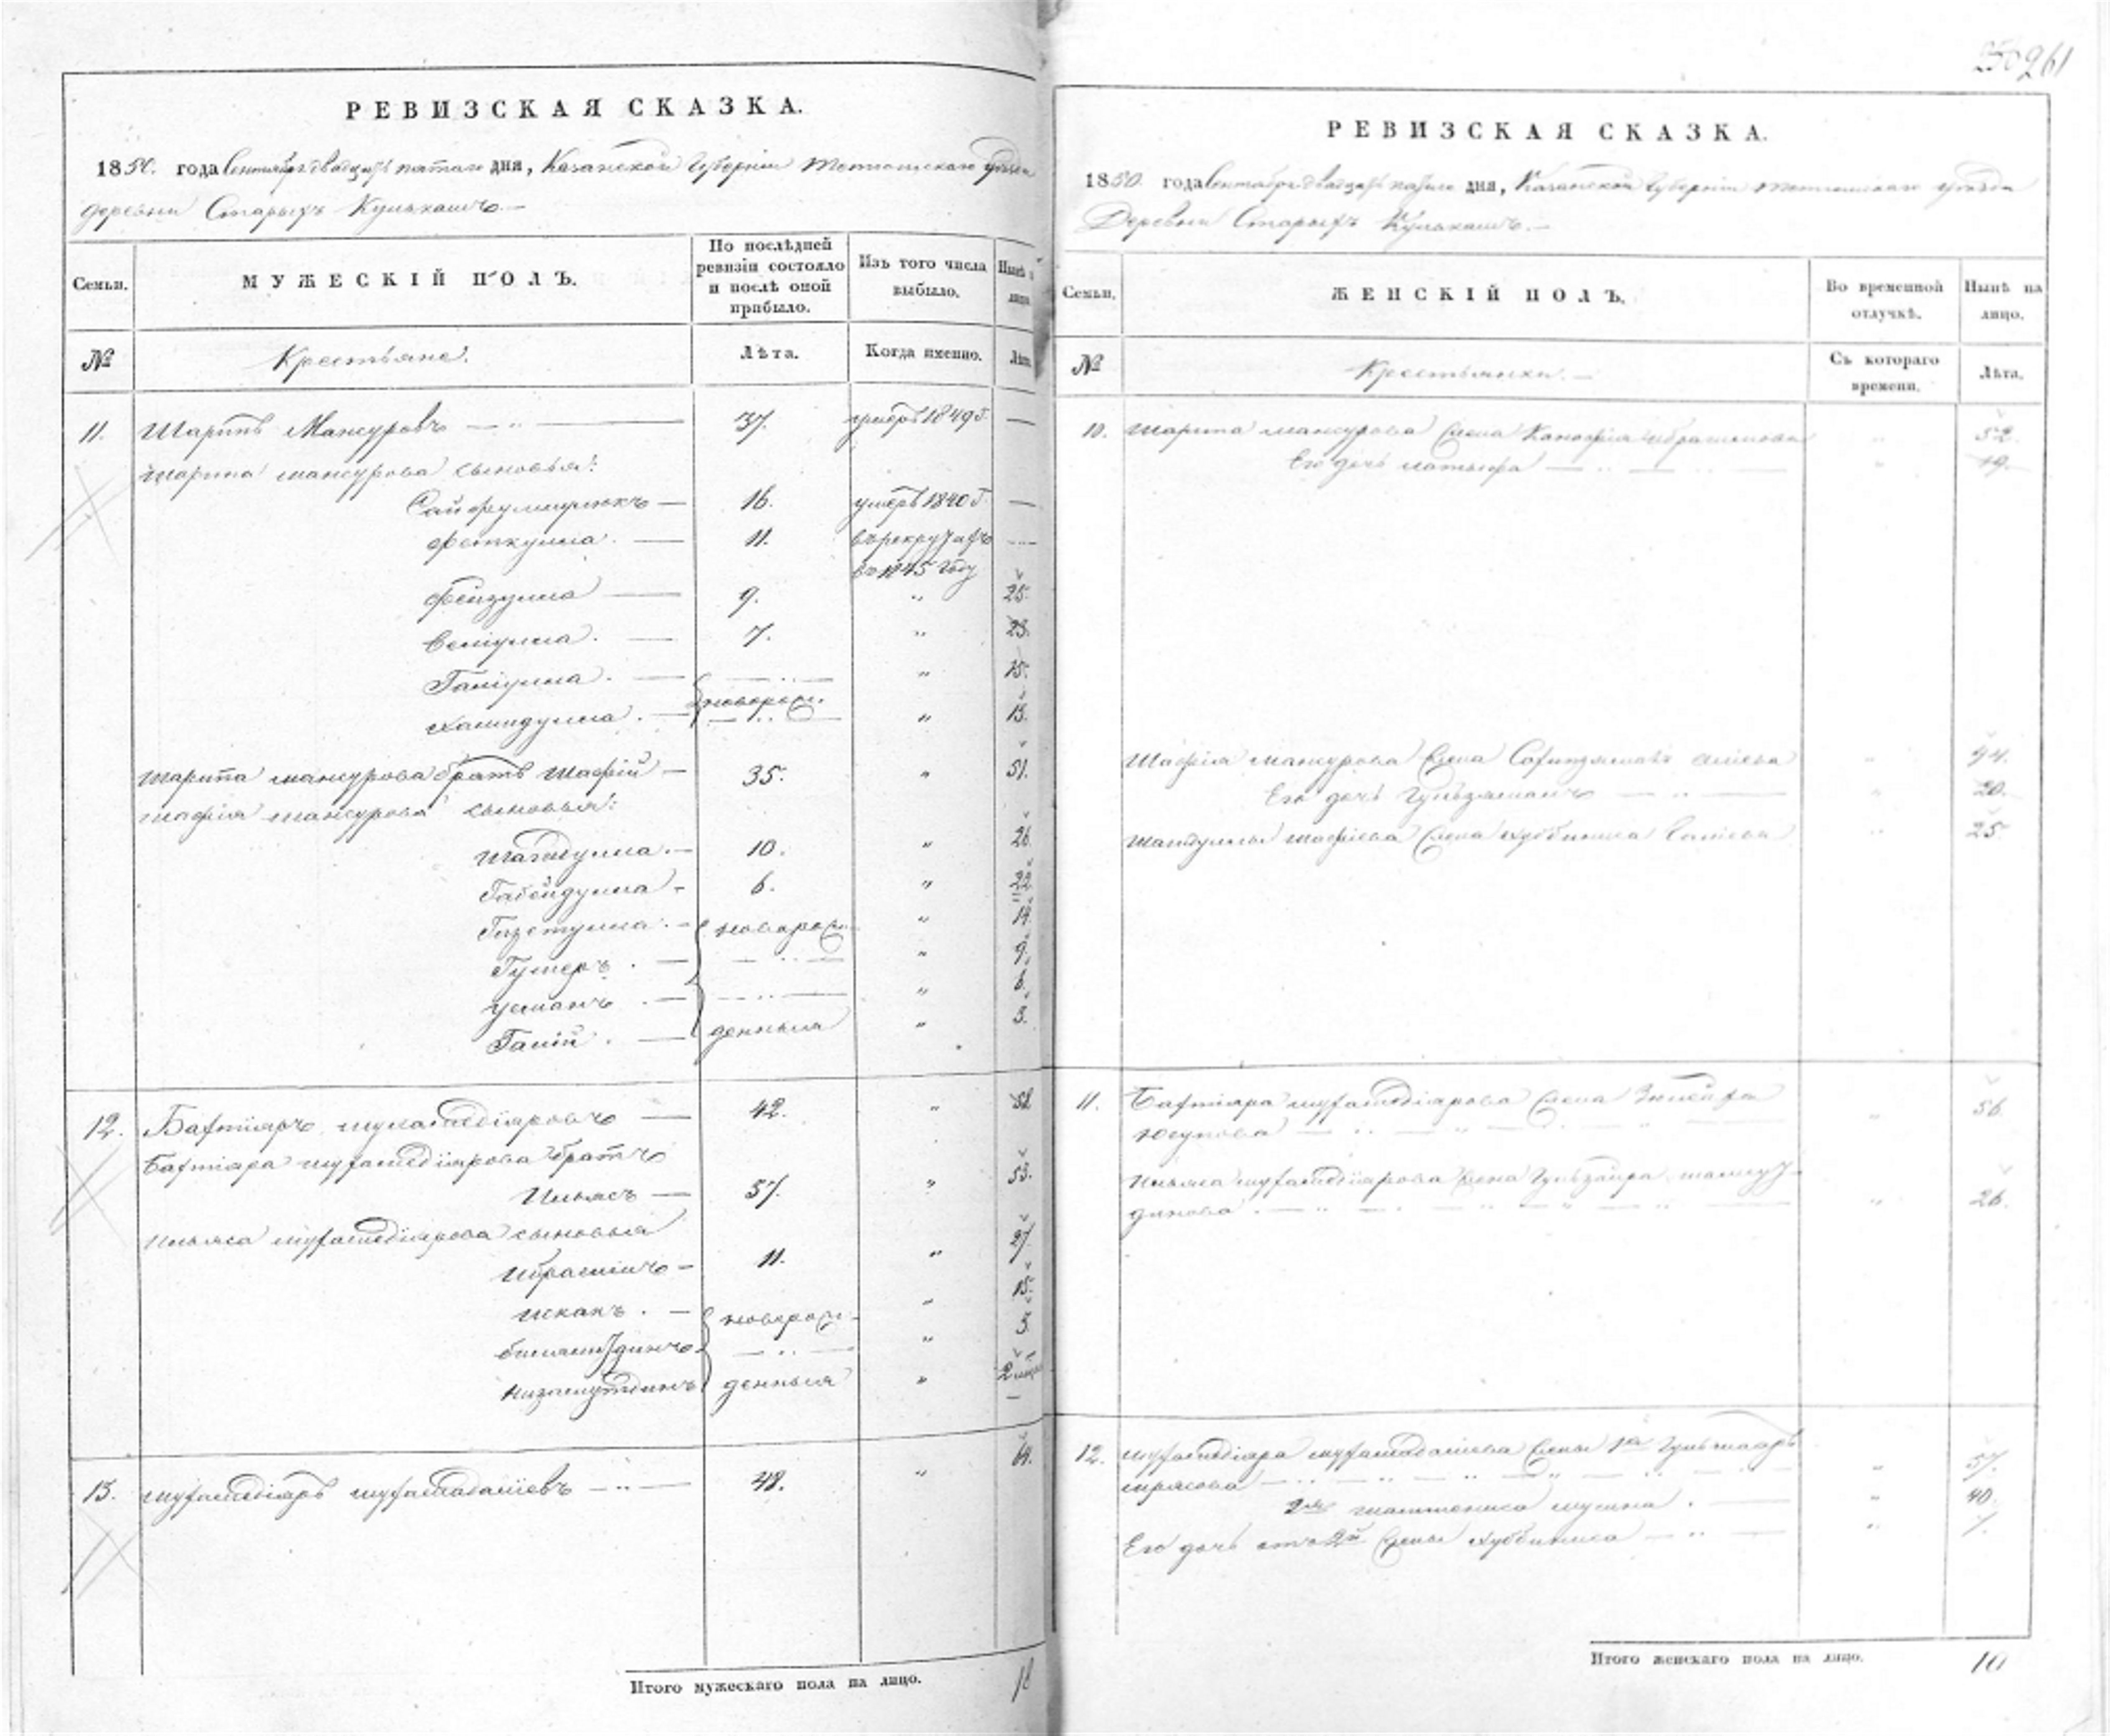 250 261
РЕВИЗСКАЯ СКАЗКА.
1850. года Сентября двадцать пятаго дня, Казанской Губерніи Тетюшскаго уѣзда
деревни Старыхъ Кулькашъ.—
Семьи.
МУЖЕСКІЙ ПОЛЪ.
По послѣдней ревизіи состояло и послѣ оной прибыло.
Изъ того числа выбыло.
Нынѣ на лицо.
№
Крестьяне.
Лѣта.
Когда именно.
Лѣта.
11. Шарипъ Мансуровъ — „ — 37. умеръ 1849 г. —
Шарипа Мансурова сыновья:
16. умеръ 1840 г. —
Феткулла. — 11. въ рекрутахъ —
въ 1845 году
Фейзулла — 9. „ 25.
Велiулла. — 7. „ 23.
Ганiулла. — „ 15.
новорож.
Хамидулла. — „ 13.
Шарипа Мансурова братъ Шафiй — 35. „ 51.
Шафiя Мансурова сыновья:
10. „ 26.
Габейдулла — 6. „ 22.
Газетулла. — новорож- „ 14.
Гумеръ. — „ 9.
Усманъ. — „ 6.
Галiй. — денныя „ 3.
12. Бахтiяръ Мухамедiяровъ — 42. „ 58.
Бахтiяра Мухамедiярова братъ
Ильясъ — 37. „ 53.
Ильяса Мухамедiярова сыновья
Ибрагимъ — 11. „ 27.
новорож- „ 15.
„ 3.
Низамутдинъ денныя „ 2
13. Мухамедiяръ — „ — 48. „ 64.
Итого мужескаго пола на лицо. 18
РЕВИЗСКАЯ СКАЗКА.
1850. года Сентября двадцать пятаго дня, Казанской Губерніи Тетюшскаго уѣзда
Деревни Старыхъ Кулькашъ.—
Семьи.
ЖЕНСКІЙ ПОЛЪ.
Во временной отлучкѣ.
Нынѣ на лицо.
№
Крестьянки.—
Съ котораго времени.
Лѣта.
10. Шарипа Мансурова жена Ибрагимова „ 52.
Его дочь Латыфа — „ — „ 19.
Шафiя Мансурова жена „ 44.
Его дочь Гульзямалъ — „ — „ 20.
Шафiева жена Хуббиниса „ 25.
11. Бахтiяра Мухамедiярова жена
Юсупова — „ — „ 56.
Ильяса Мухамедiярова жена
„ 26.
12. Мухамедiяра жены 1я
— „ — „ 57.
2я Мусина. — „ 40.
Его дочь отъ 2й жены Хуббиниса — „ — „ 7.
Итого женскаго пола на лицо. 10